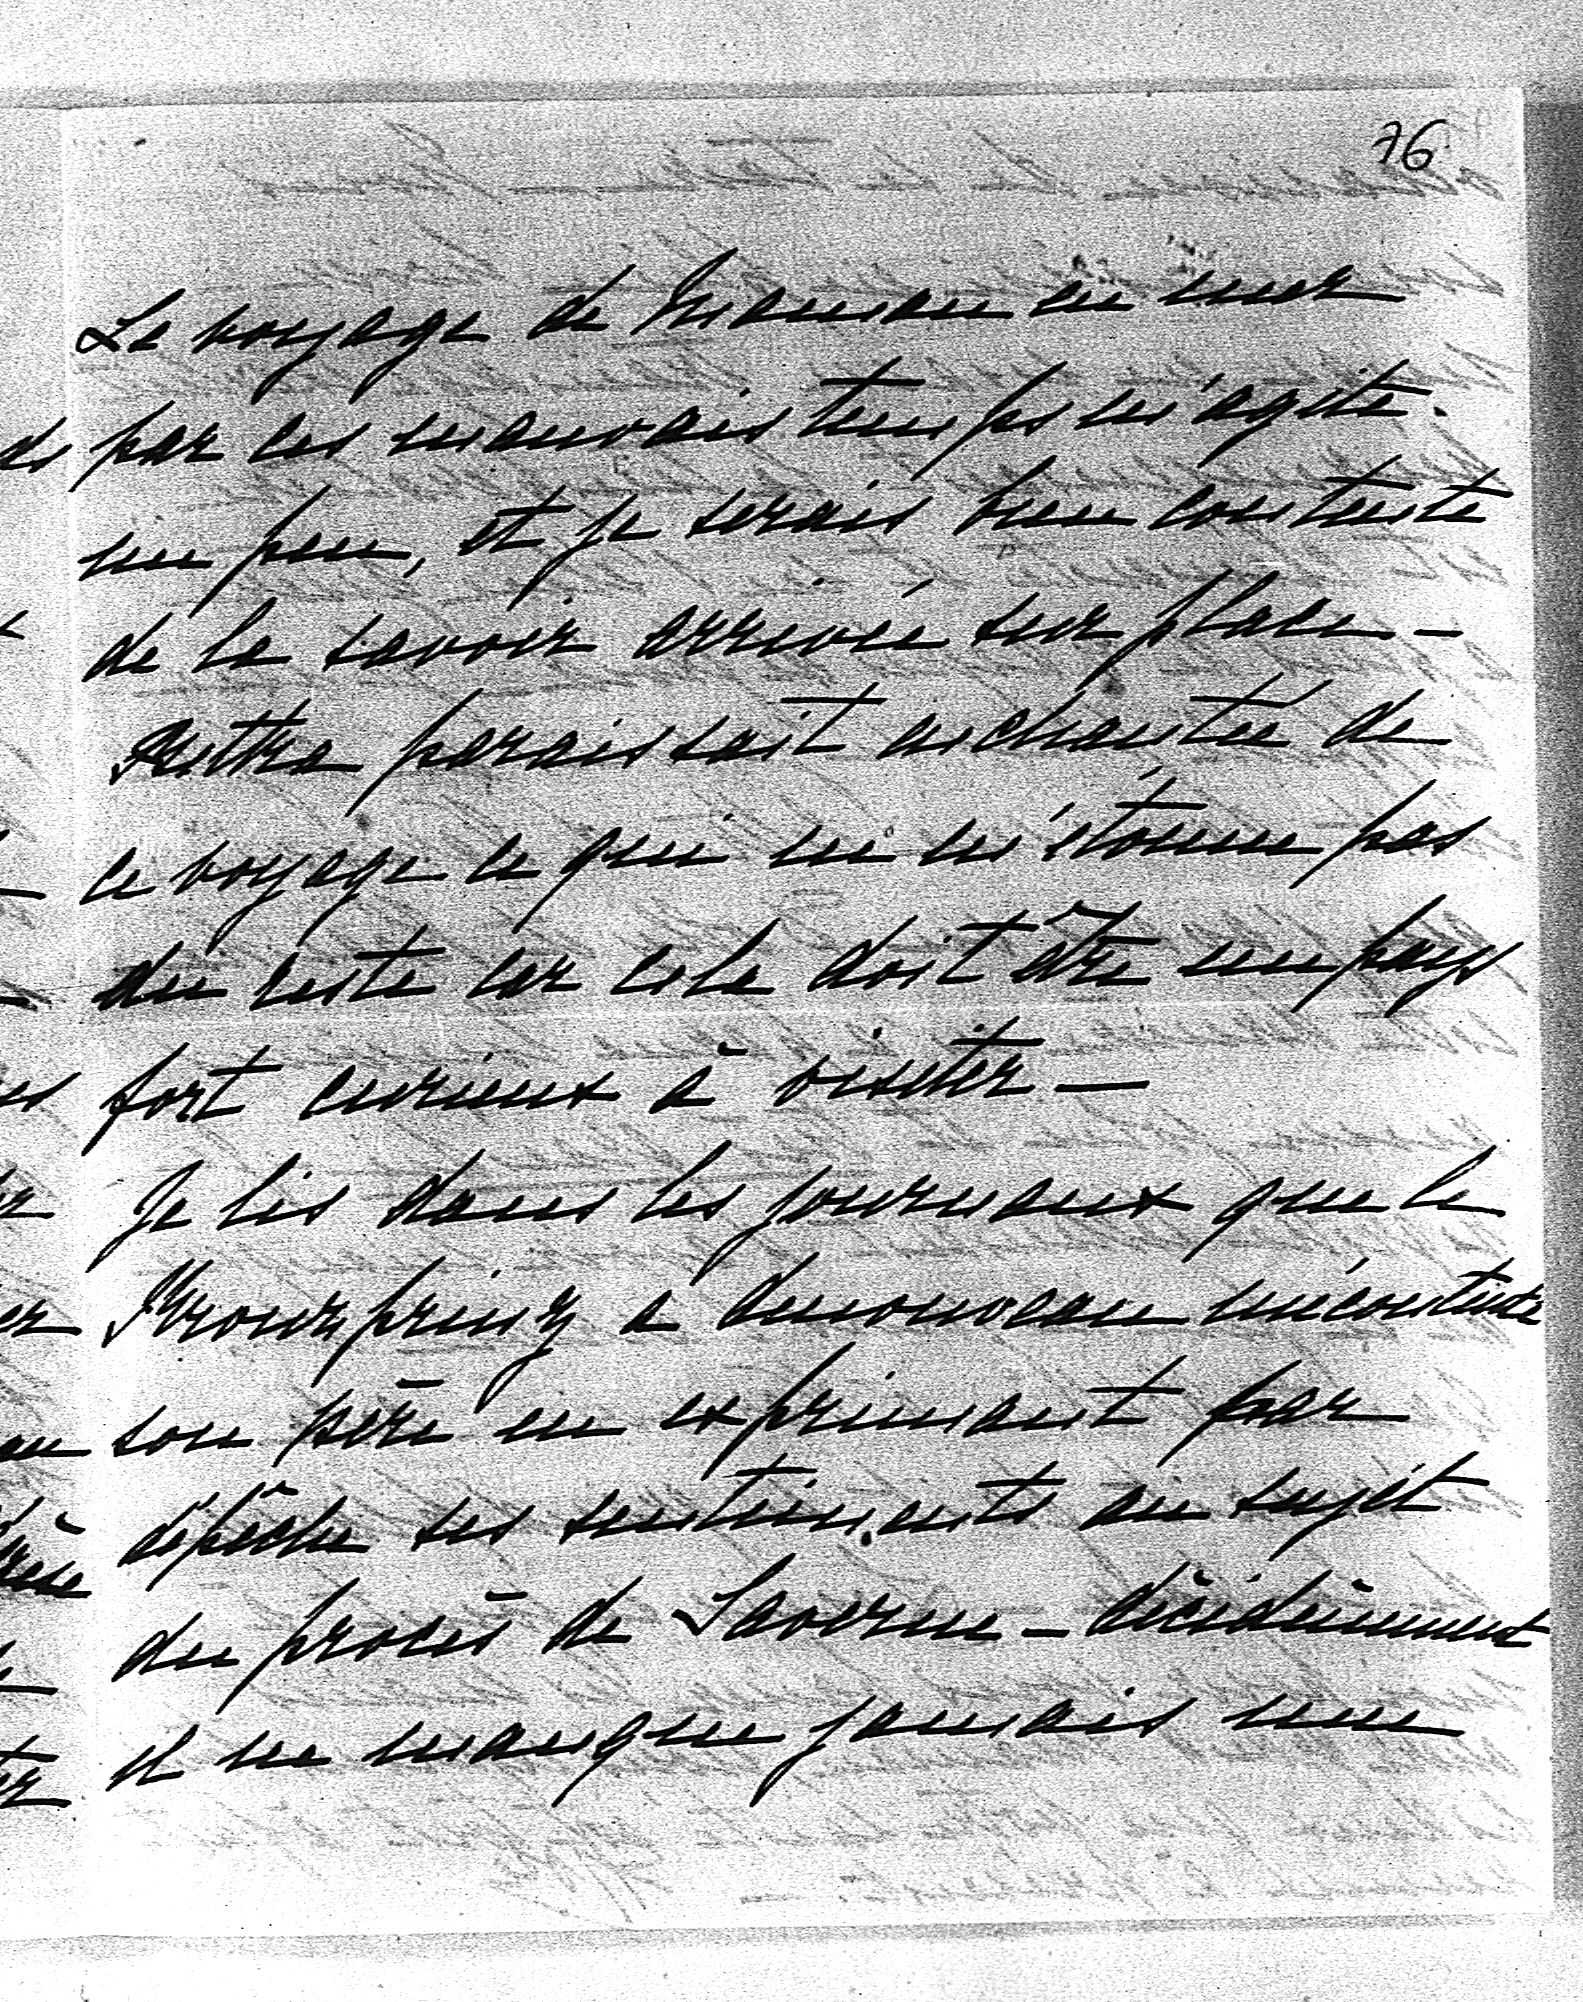 76
Le voyage de Maman en mer
par ces mauvais temps m'agite
un peu, et je serais bien contente
de la savoir arrivée sur place —
paraissait enchantée de
ce voyage ce qui ne m'étonne pas
du reste car cela doit être un pays
fort curieux à visiter —
Je lis dans les journaux que le
Kronzprinz a denouveau mécontenté
son père en exprimant par
dépêche ses sentiments au sujet
du procès de Saverne — décidèmment
il ne manque jamais une